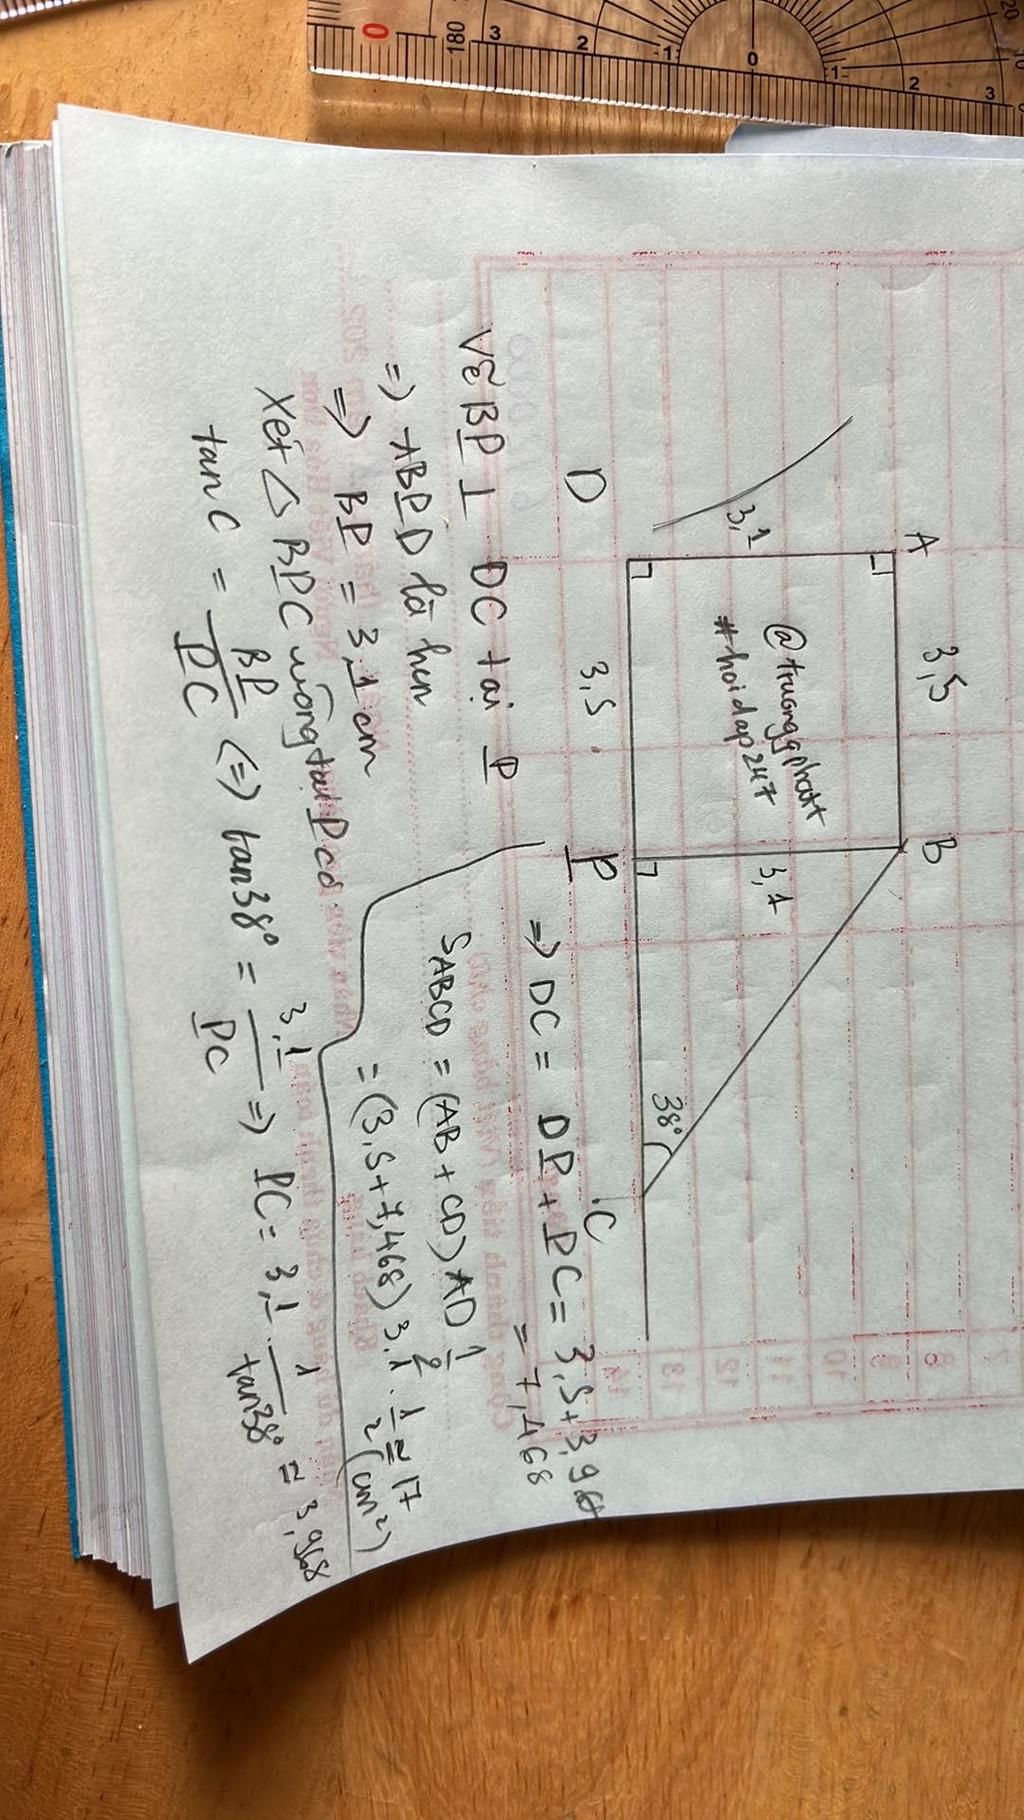 A
3,5
B
3,1
@truonggphatt
#hoidap247
3,1
38°
D
3,5
P
C
Vẽ BP ⊥ DC tại P
=> ABPD là hcn
=> BP = 3,1 cm
Xét △ BPC vuông tại P có
tan C = BP/PC <=> tan38° = 3,1/PC => PC = 3,1 . 1/tan38° = 3,968
=> DC = DP + PC = 3,5 + 3,968
= 7,468
SABCD = (AB + CD) AD 1/2
= (3,5 + 7,468) 3,1 . 1/2 ≈ 17 (cm²)
0
180
3
2
1
0
1
2
3